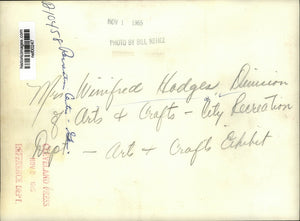 NOV 1 1965
PHOTO BY BILL NEHEZ
810458
Mrs. Winifred Hodges, Division
of Arts & Crafts - City Recreation
Dept - Arts & Crafts Exhibit
CLEVELAND PRESS
NOV 2 65
REFERENCE DEPT.